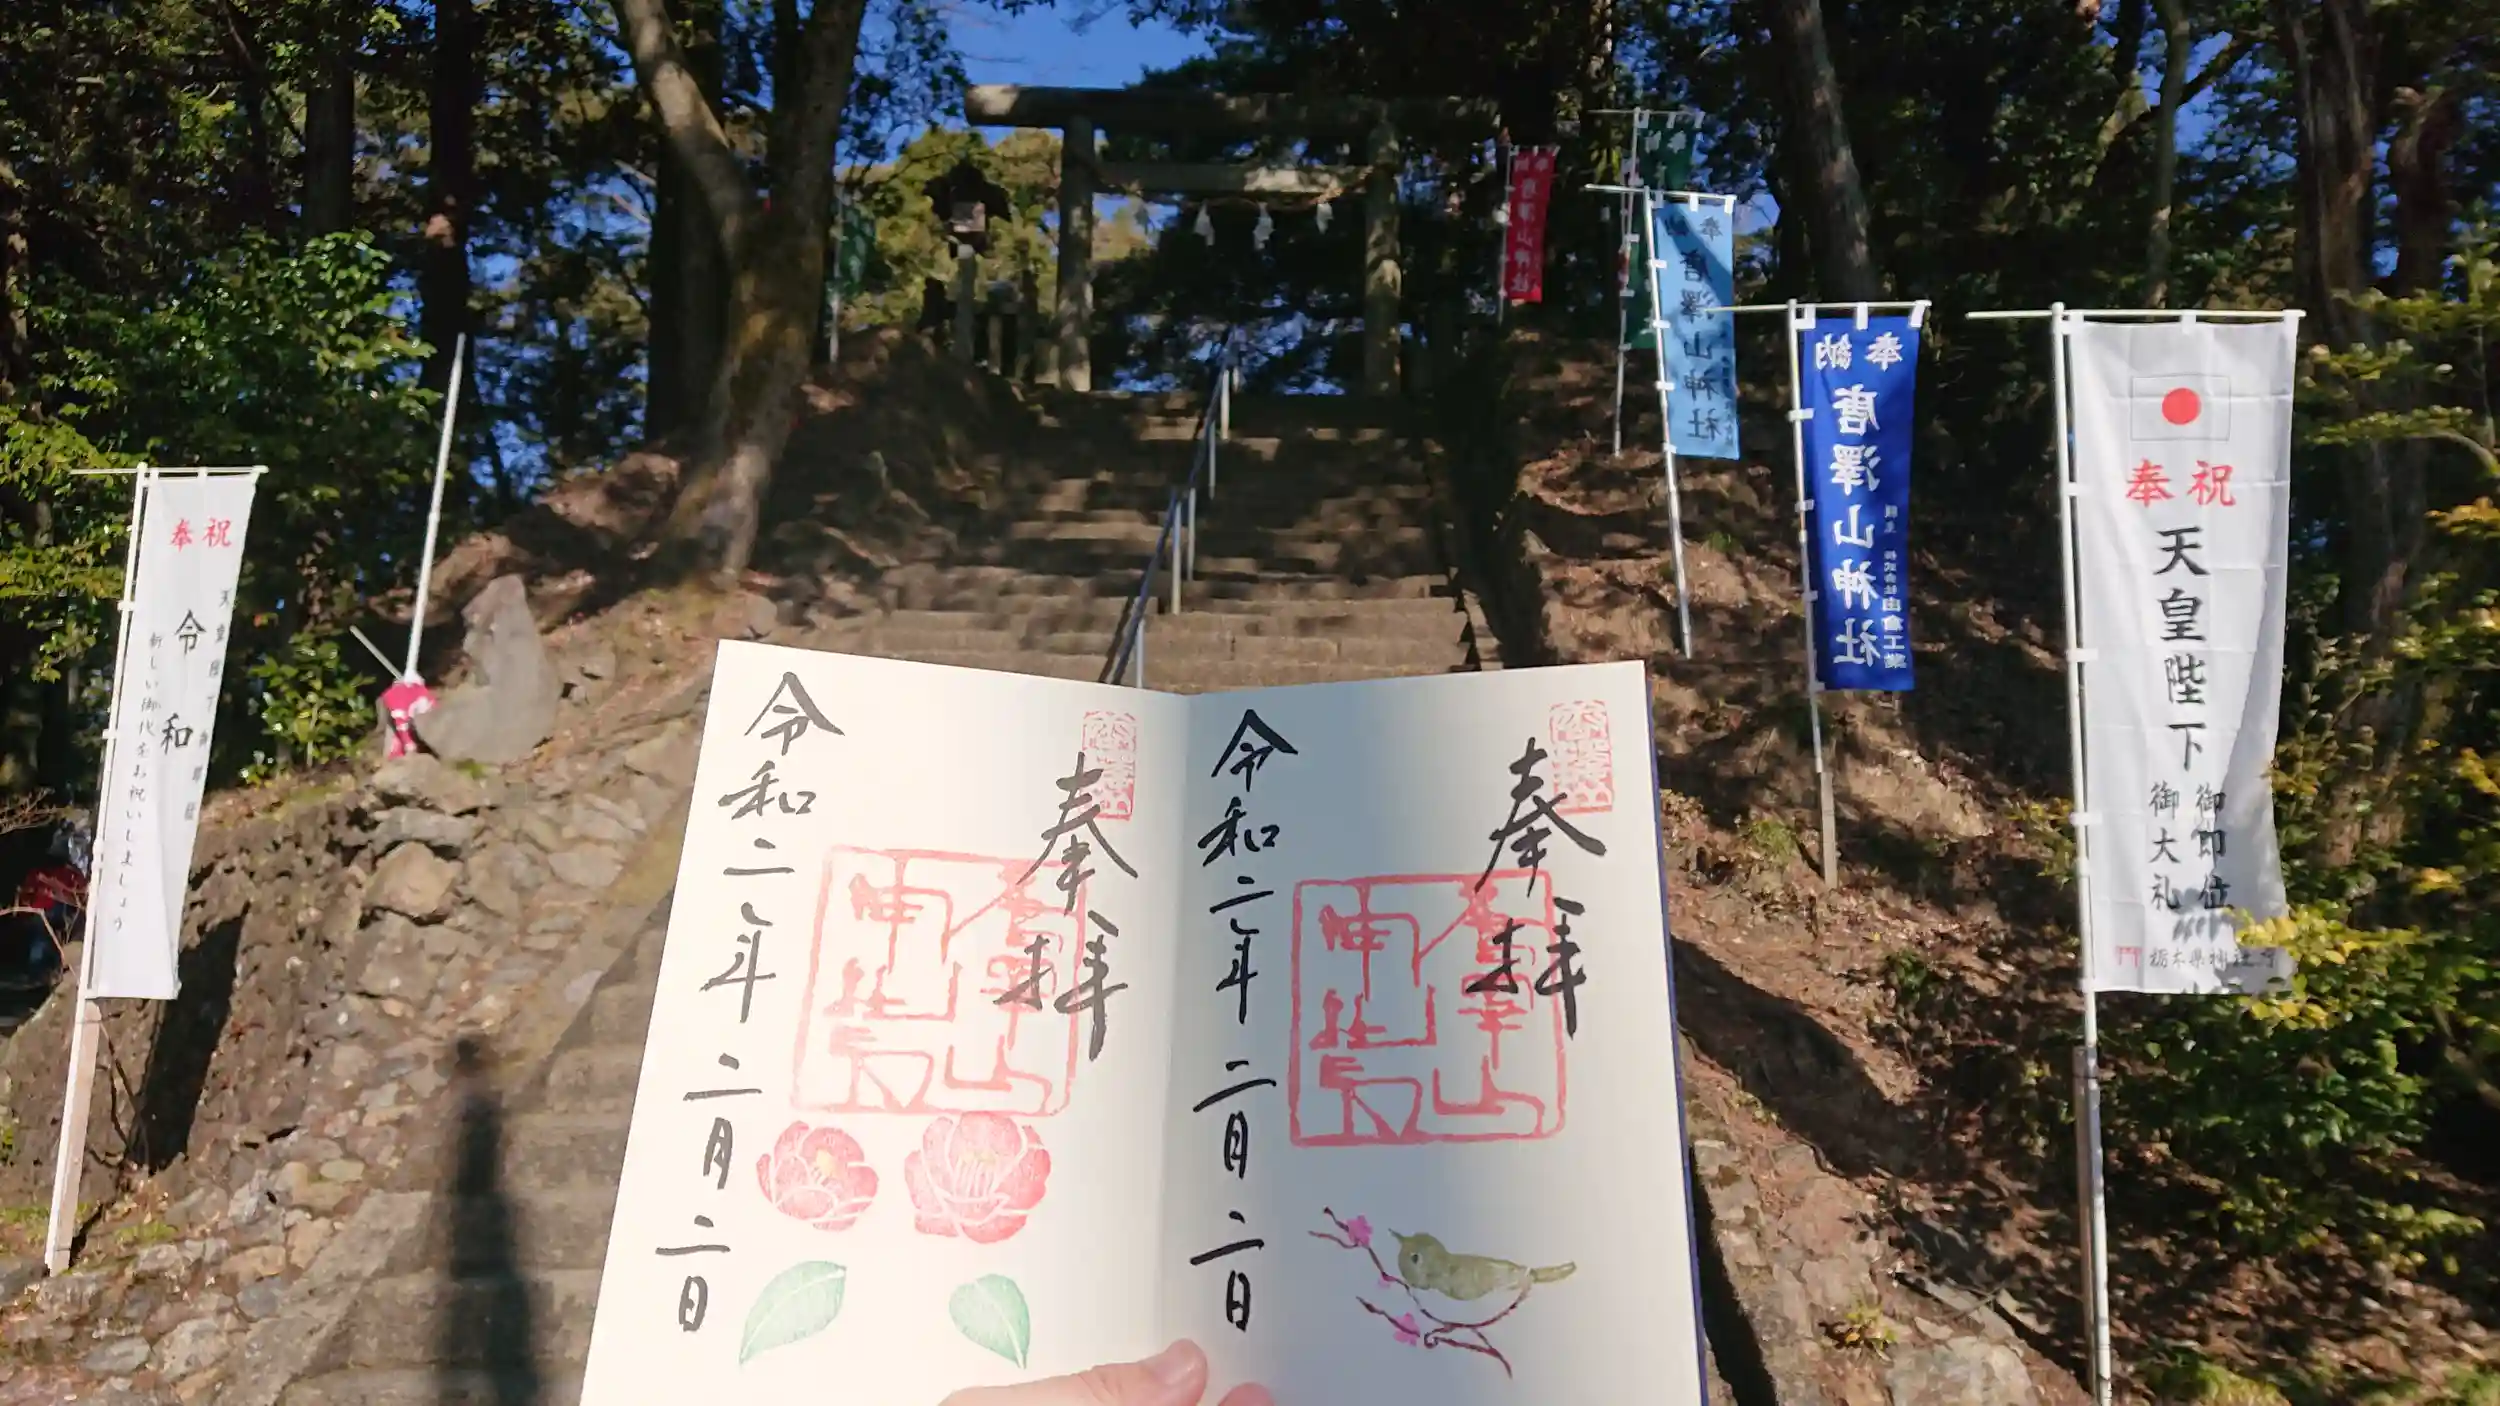 奉祝
天皇陛下御即位
令和
新しい御代をお祝いしましょう
奉拝
令和二年二月二日
奉拝
令和二年二月二日
唐澤山神社
奉
唐澤山神社
奉納
唐澤山神社
奉祝
天皇陛下
御即位
御大礼
栃木県神社庁